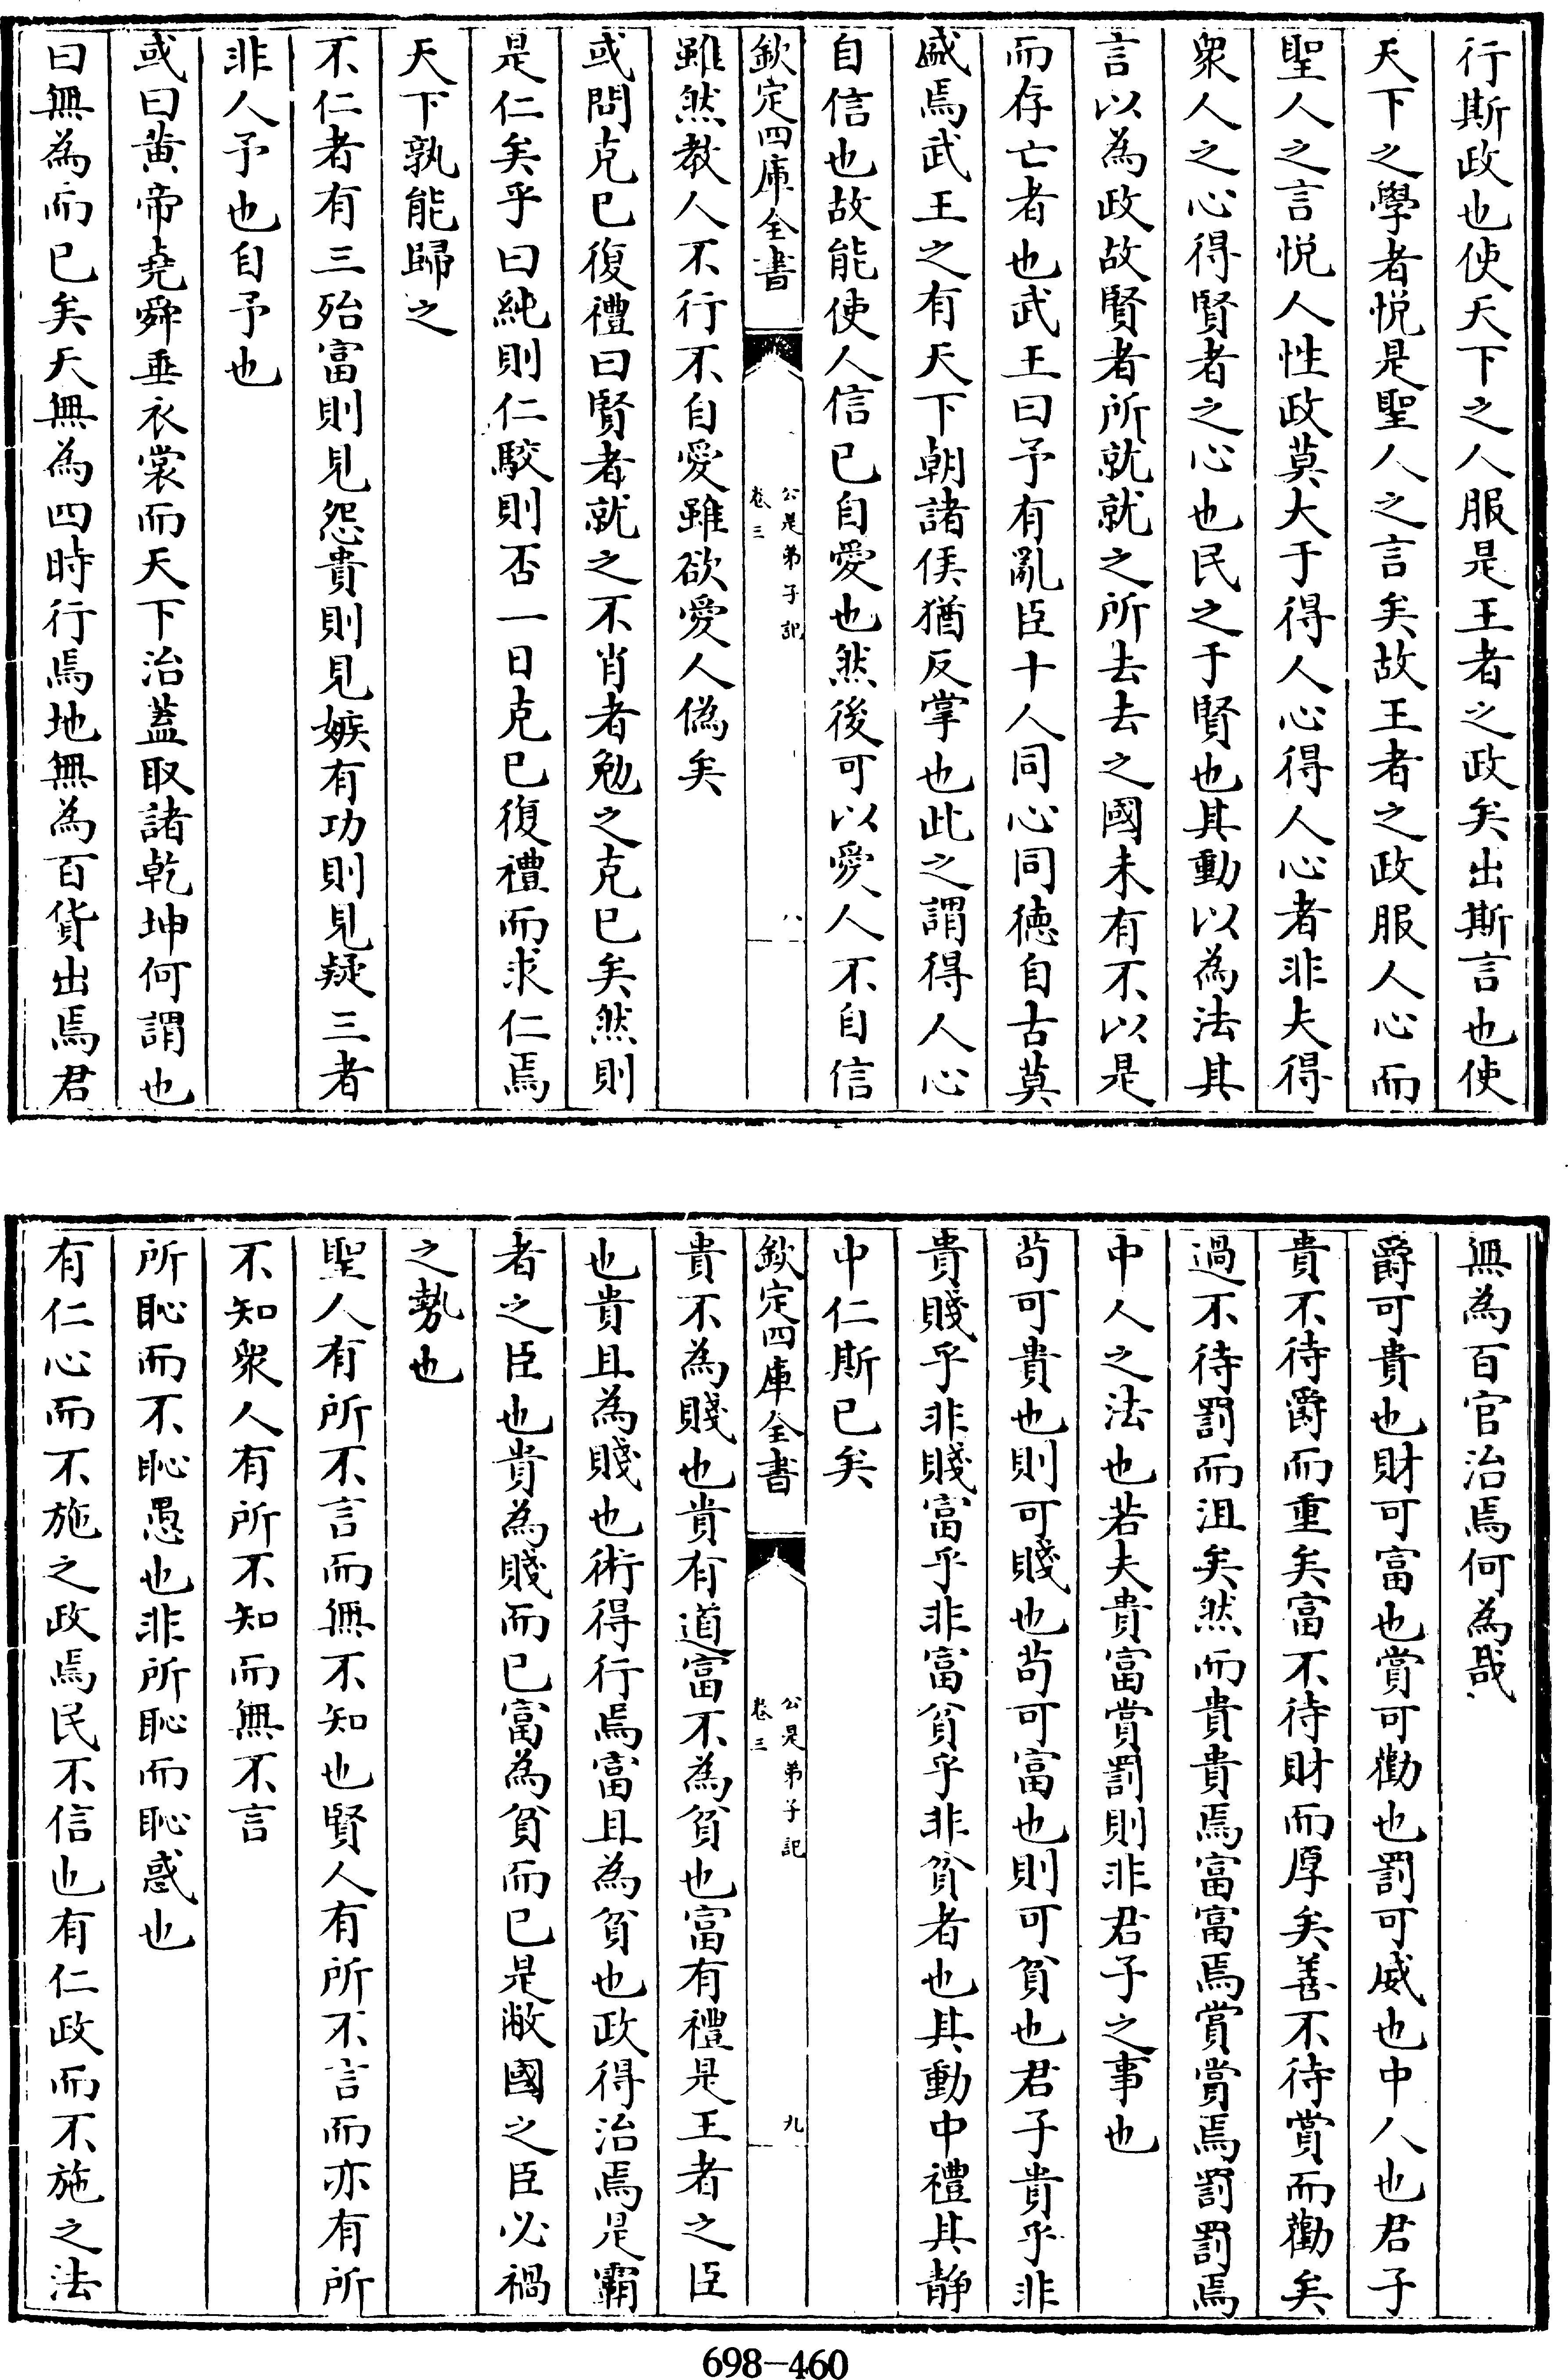 行斯政也使天下之人服是王者之政矣出斯言也使
天下之學者悦是聖人之言矣故王者之政服人心而
聖人之言悦人性政莫大于得人心得人心者非夫得
衆人之心得賢者之心也民之于賢也其動以為法其
言以為政故賢者所就就之所去去之國未有不以是
而存亡者也武王曰予有亂臣十人同心同徳自古莫
盛焉武王之有天下朝諸侯猶反掌也此之謂得人心
自信也故能使人信已自愛也然後可以愛人不自信
欽定四庫全書
公是弟子記
卷三
八
雖然教人不行不自愛雖欲愛人偽矣
或問克已復禮曰賢者就之不肖者勉之克已矣然則
是仁矣乎曰純則仁駮則否一日克已復禮而求仁焉
天下孰能歸之
不仁者有三殆富則見怨貴則見嫉有功則見疑三者
非人予也自予也
或曰黄帝堯舜垂衣裳而天下治蓋取諸乾坤何謂也
曰無為而已矣天無為四時行焉地無為百貨出焉君
無為百官治焉何為哉
爵可貴也財可富也賞可勸也罰可威也中人也君子
貴不待爵而重矣富不待財而厚矣善不待賞而勸矣
過不待罰而沮矣然而貴貴焉富富焉賞賞焉罰罰焉
中人之法也若夫貴富賞罰則非君子之事也
苟可貴也則可賤也苟可富也則可貧也君子貴乎非
貴賤乎非賤富乎非富貧乎非貧者也其動中禮其静
中仁斯已矣
欽定四庫全書
公是弟子記
卷三
九
貴不為賤也貴有道富不為貧也富有禮是王者之臣
也貴且為賤也術得行焉富且為貧也政得治焉是霸
者之臣也貴為賤而已富為貧而已是敝國之臣必禍
之勢也
聖人有所不言而無不知也賢人有所不言而亦有所
不知衆人有所不知而無不言
所恥而不恥愚也非所恥而恥惑也
有仁心而不施之政焉民不信也有仁政而不施之法
698-460